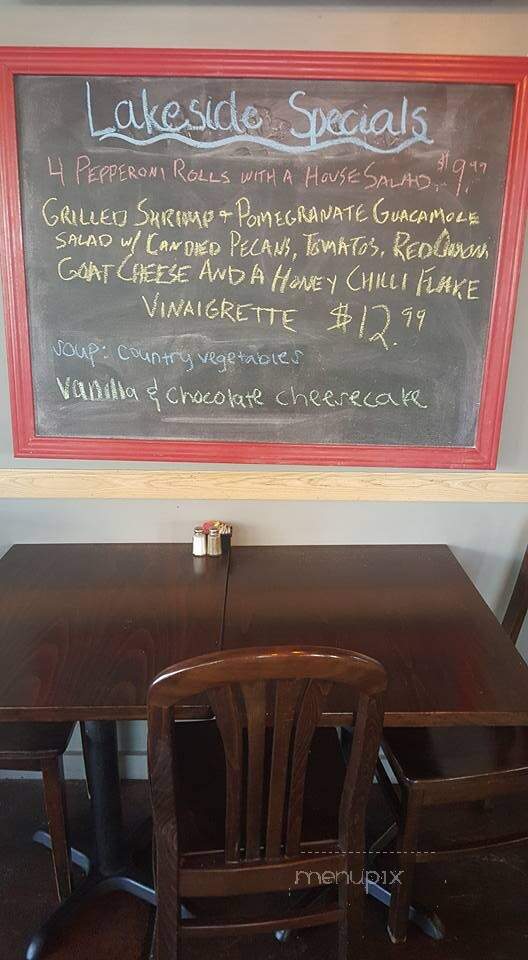 Lakeside Specials
4 PEPPERONI ROLLS WITH A HOUSE SALAD. $9.99
GRILLED SHRIMP + POMEGRANATE GUACAMOLE
SALAD W/ CANDIED PECANS, TOMATOS, RED ONION,
GOAT CHEESE AND A HONEY CHILLI FLAKE
VINAIGRETTE $12.99
soup: country vegetables
Vanilla & chocolate cheesecake
menupix